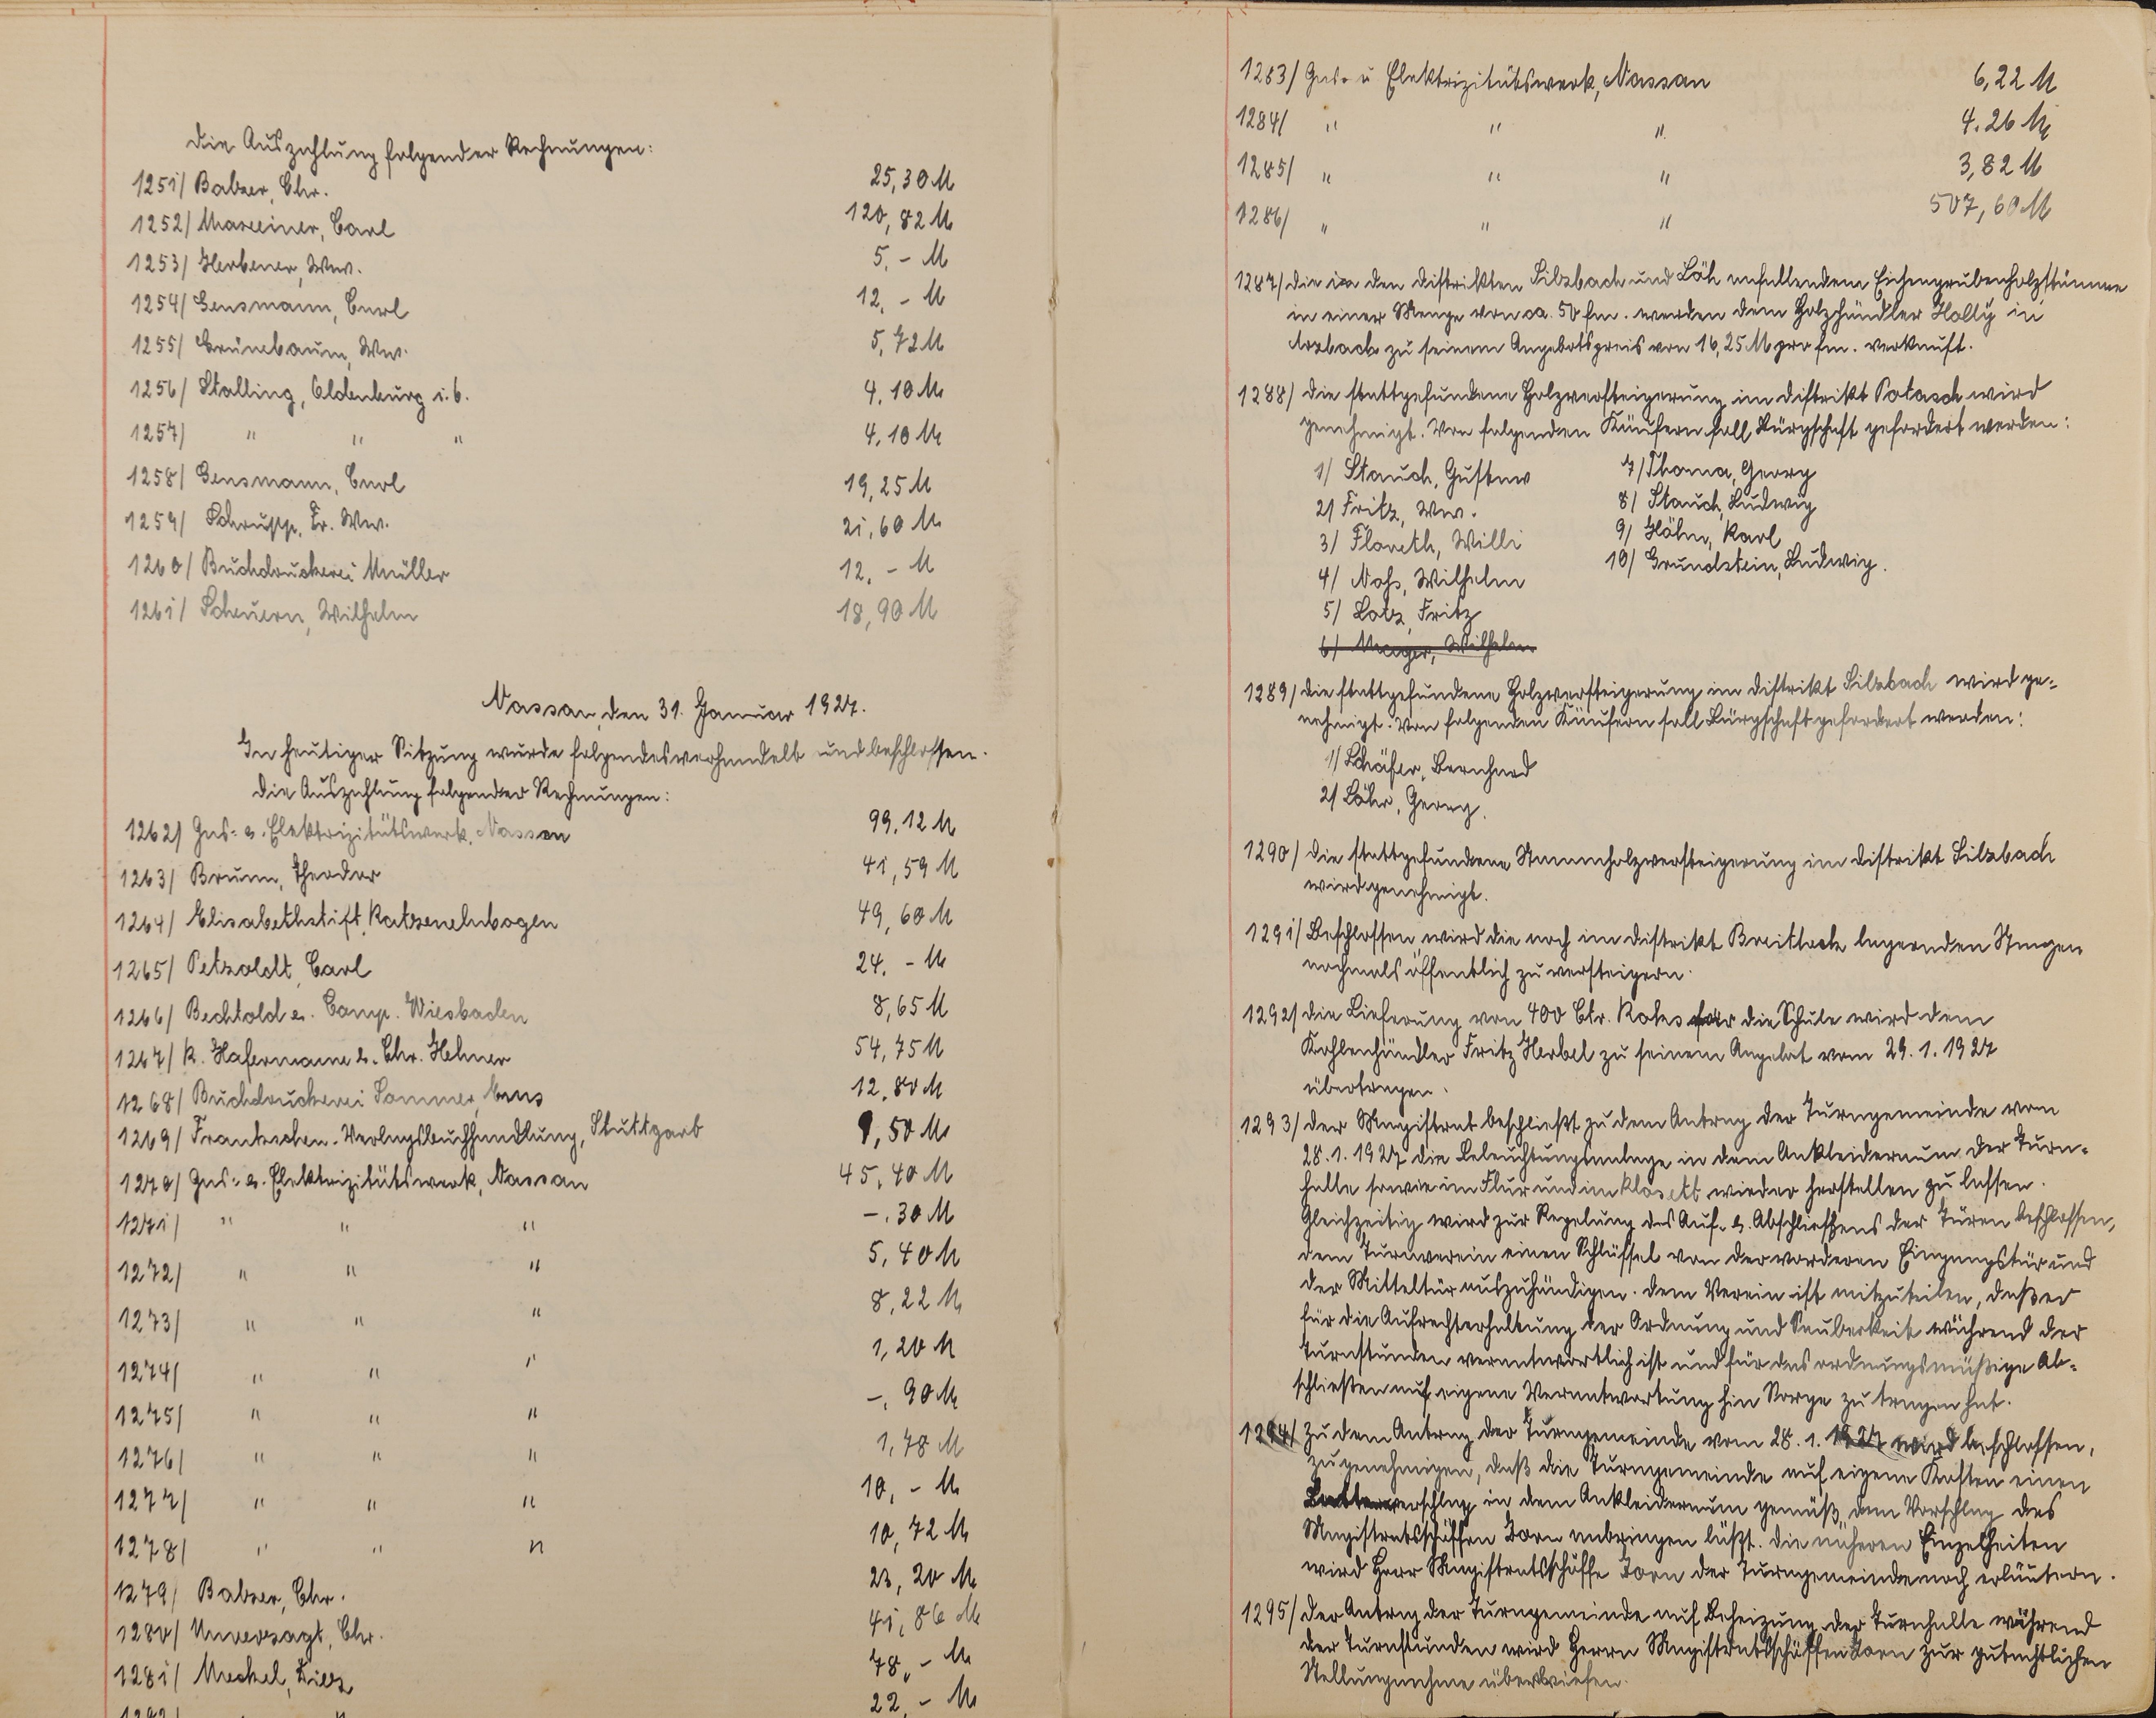 die Auszahlung folgender Rechnungen:
1251/ Balzer, Chr. 25,30 M
1252/ Mareiner, Carl 120,82 M
1253/ Herbener, Ww. 5,- M
1254/ Gensmann, Carl 12,- M
1255/ Grünebaum, Ww. 5,72 M
1256/ Stalling, Oldenburg i. O. 4,10 M
1257/ " " " 4,10 M
1258/ Gensmann, Carl 19,25 M
1259/ Schrupp, Fr. Ww. 21,60 M
1260/ Buchdruckerei Müller 12,- M
1261/ Scheuern, Wilhelm 18,90 M
Nassau, den 31. Januar 1927.
In heutiger Sitzung wurde folgendes verhandelt und beschlossen.
die Auszahlung folgender Rechnungen:
1262/ Gas- u. Elektrizitätswerk, Nassau 99,12 M
1263/ Bruun, Theodor 41,59 M
1264/ Elisabethstift, Katzenelnbogen 49,60 M
1265/ Petzoldt, Carl 24,- M
1266/ Bechtold u. Comp. Wiesbaden 8,65 M
1267/ K. Hafermann u. Chr. Hehner 54,75 M
1268/ Buchdruckerei Sommer, Ems 12,80 M
1269/ Frankschen-Verlagsbuchhandlung, Stuttgart 9,50 M
1270/ Gas- u. Elektrizitätswerk, Nassau 45,40 M
1271/ " " " -,30 M
1272/ " " " 5,40 M
1273/ " " " 8,22 M
1274/ " " " 1,20 M
1275/ " " " -,90 M
1276/ " " " 1,78 M
1277/ " " " 10,- M
1278/ " " " 10,72 M
1279/ Balzer, Chr. 23,20 M
1280/ Unverzagt, Chr. 41,86 M
1281/ Meckel, Diez 78,- M
1282/ 22,- M
1283/ Gas- u Elektrizitätswerk, Nassau 6,22 M
1284/ " " " 4.26 M
1285/ " " " 3,82 M
1286/ " " " 507,60 M
1287/ die in den Distrikten Silzbach und Löh anfallenden Eichengrubenholzstämme
in einer Menge von ca. 50 fm. werden dem Holzhändler Holly in
Arzbach zu seinem Angebotspreis von 16,25 M pro fm. verkauft.
1288/ die stattgefundene Holzversteigerung im Distrikt Potasch wird
genehmigt. Von folgenden Käufern soll Bürgschaft gefordert werden:
1/ Stauch, Gustav
2/ Fritz, Ww.
3/ Floreth, Willi
4/ Noss, Wilhelm
5/ Lotz, Fritz
6/ Unger, Wilhelm
7/ Thoma, Georg
8/ Stauch, Ludwig
9/ Höhn, Karl
10/ Grundstein, Ludwig.
1289/ die stattgefundene Holzversteigerung im Distrikt Silzbach wird ge-
nehmigt. Von folgenden Käufern soll Bürgschaft gefordert werden:
1/ Schäfer, Bernhard
2/ Löhr, Georg.
1290/ die stattgefundene Stammholzversteigerung im Distrikt Silzbach
wird genehmigt.
1291/ Beschlossen wird die noch im Distrikt lagernden Stangen
nochmals öffentlich zu versteigern.
1292/ die Lieferung von 400 Ctr. Kokes für die Schule wird dem
Kohlenhändler Fritz Herbel zu seinem Angebot vom 29. 1. 1927
übertragen.
1293/ der Magistrat beschließt zu dem Antrag der Turngemeinde vom
28. 1. 1927 die Beleuchtungsanlage in dem Ankleideraum der Turn-
halle sowie im Flur und im Klosett wieder herstellen zu lassen.
Gleichzeitig wird zur Regelung des Auf- u. Abschliessens der Türen beschlossen,
dem Turnverein einen Schlüssel von der vorderen Eingangstür und
der Mitteltür auszuhändigen. dem Verein ist mitzuteilen, daß er
für die Aufrechterhaltung der Ordnung und Sauberkeit während der
Turnstunden verantwortlich ist und für das ordnungsmäßige Ab-
schließen auf eigene Verantwortung hin Sorge zu tragen hat.
1294/ Zu dem Antrag der Turngemeinde vom 28. 1. 1927 wird beschlossen,
zu genehmigen, daß die Turngemeinde auf eigene Kosten einen
Lattenverschlag in dem Ankleideraum gemäß dem Vorschlag des
Magistratsschöffen Zorn anbringen läßt. die näheren Einzelheiten
wird Herr Magistratsschöffe Zorn der Turngemeinde noch erläutern.
1295/ der Antrag der Turngemeinde auf Beheizung der Turnhalle während
der Turnstunden wird Herrn Magistratsschöffen Zorn zur gutachtlichen
Stellungnahme überwiesen.